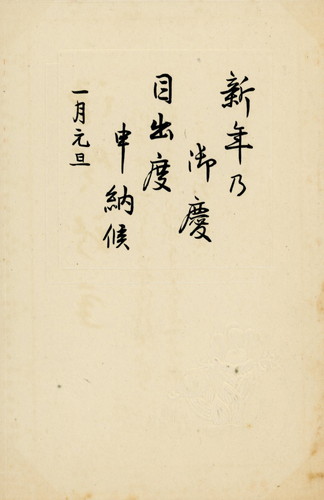 新年乃
御慶
目出度
申納候
一月元旦